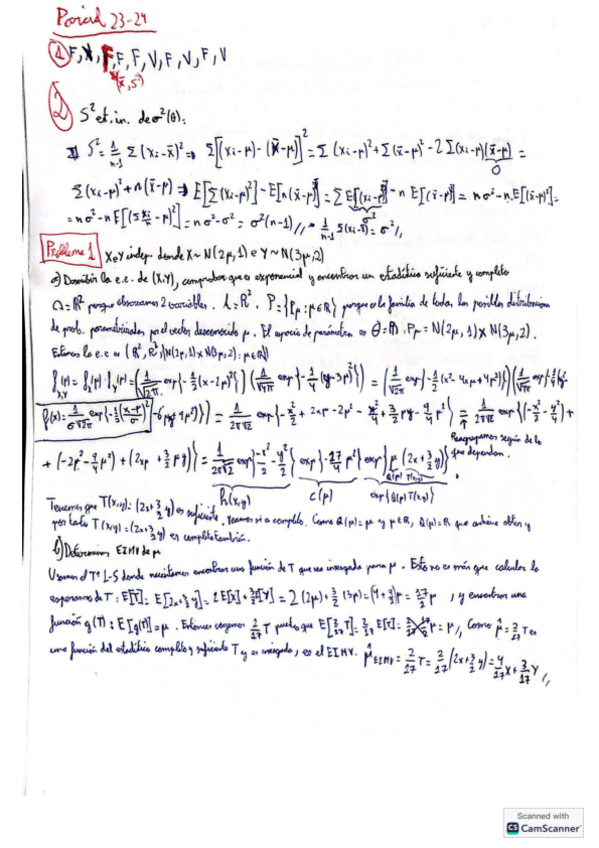 Parcial 23-24
① F, V, F, F, F, V, F, V, F, V
(x̄, S²)
② S² et. in. de σ²(θ):
S² = 1/(n-1) Σ(xi-x̄)² ⇒ Σ[(xi-μ)-(x̄-μ)]² = Σ(xi-μ)² + Σ(x̄-μ)² - 2Σ(xi-μ)(x̄-μ) =
0
Σ(xi-μ)² + n(x̄-μ)² ⇒ E[Σ(xi-μ)²] - E[n(x̄-μ)²] = ΣE[(xi-μ)²] - n E[(x̄-μ)²] = nσ² - n E[(x̄-μ)²] =
σ²
= nσ² - n E[(Σxi/n - μ)²] = nσ² - σ² = σ²(n-1) //, 1/(n-1) Σ(xi-x̄)² = σ² //
Problema 1 X e Y indep. donde X ~ N(2μ,1) e Y ~ N(3μ,2)
a) Describir la e.e. de (X,Y), comprobar que es exponencial y encontrar un estadítico suficiente y completo
Ω = R² porque observamos 2 variables. A = R². P = {Pμ : μ∈R} porque es la familia de todas las posibles distribuciones
de prob. parametrizadas por el vector desconocido μ. El espacio de parámetros es Θ = R. Pμ = N(2μ,1) × N(3μ,2).
Entonces la e.e es (R², R², {N(2μ,1) × N(3μ,2) : μ∈R})
f(μ) = fx(μ)·fy(μ) = (1/√2π exp{-1/2(x-2μ)²}) (1/√4π exp{-1/4(y-3μ)²}) = (1/√2π exp{-1/2(x²-4xμ+4μ²)}) (1/√4π exp{-1/4(y²
X,Y
f(x) = 1/(σ√2π) exp{-1/2((x-μ)/σ)²} -6μy+9μ²)}) = 1/(2π√2) exp{-x²/2 + 2xμ - 2μ² - y²/4 + 3/2 μy - 9/4 μ²} = 1/(2π√2) exp{(-x²/2 - y²/4) +
Reagrupamos según de lo
+ (-2μ² - 9/4 μ²) + (2xμ + 3/2 μy)} = 1/(2π√2) exp{-x²/2 - y²/4} exp{-17/4 μ²} exp{μ (2x + 3/2 y)} que dependan.
Q(μ) T(x,y)
h(x,y) c(μ) exp{Q(μ) T(x,y)}
Tenemos que T(x,y) = (2x + 3/2 y) es suficiente. Veamos si es completo. Como Q(μ) = μ y μ∈R, Q(μ) = R que contiene abtos y
por tanto T(x,y) = (2x + 3/2 y) es completo también.
b) Determinar EIMV de μ
Usamos el Tª L-S donde necesitamos encontrar una función de T que sea insesgada para μ. Esto no es más que calcular la
esperanza de T: E[T] = E[2x + 3/2 y] = 2E[X] + 3/2 E[Y] = 2(2μ) + 3/2 (3μ) = (4 + 9/2)μ = 17/2 μ, y encontrar una
función g(T) : E[g(T)] = μ. Entonces cogemos 2/17 T puesto que E[2/17 T] = 2/17 E[T] = 2/17 17/2 μ = μ //, Como μ̂ = 2/17 T es
una función del estadítico completo y suficiente T y es insesgado, es el EIMV. μ̂ EIMV = 2/17 T = 2/17 (2x + 3/2 y) = 4/17 X + 3/17 Y //
Scanned with
CS CamScanner